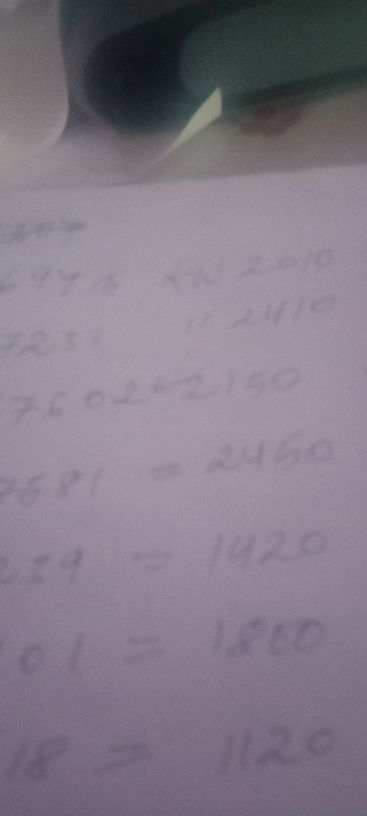 607
KW 2010
7231 " 2410
7602 = 2150
7581 = 2460
239 = 1420
101 = 1800
18 = 1120